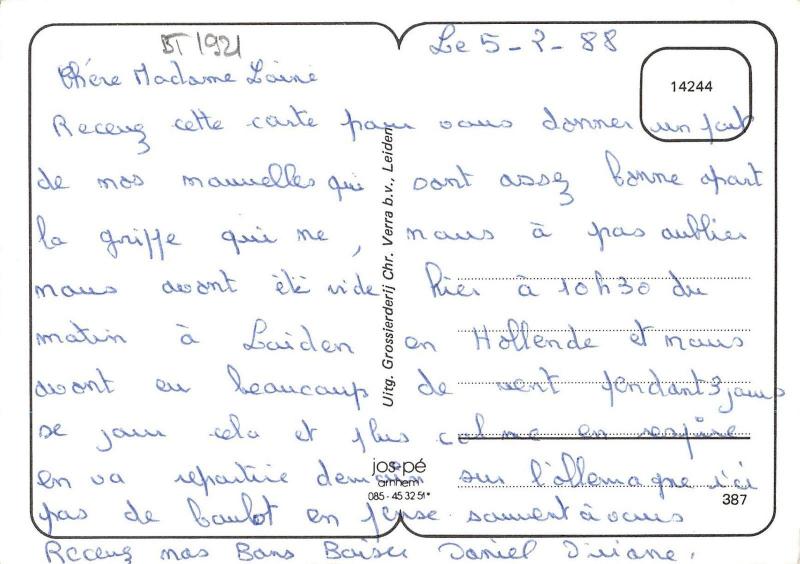 BT 1921
Le 5-2-88
14244
Chére Madame Lainé
Recevez cette carte pour vous donner un petit
de nos nouvelles qui sont assez bonne apart
la griffe qui ne, nous à pas oublier
nous avont été vide hier à 10h30 du
matin à Laiden en Hollende et nous
avont eu beaucoup de vent pendant 3 jours
se jour cela et plus calme en respire
en va repartire demain sur l'ollemagne ici
pas de boulot en pense souvent à vous
Recevez nos Bons Baiser Daniel Diviane.
Uitg. Grossierderij Chr. Verra b.v., Leiden
jos-pé
arnhem
085-45 32 51*
387